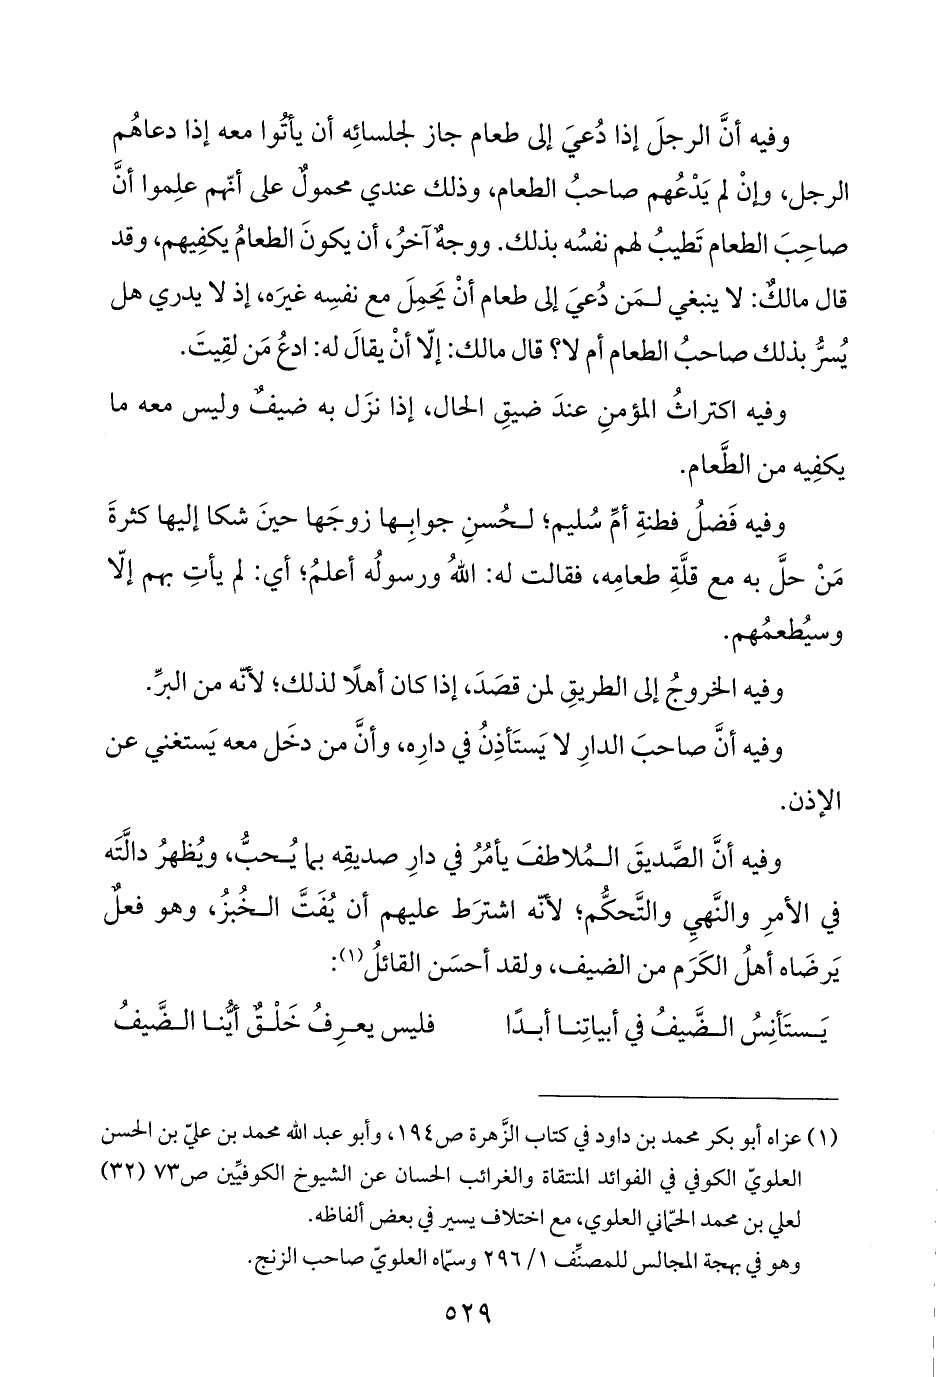 وفيه أنَّ الرجلَ إذا دُعيَ إلى طعام جاز لجلسائِه أن يأتُوا معه إذا دعاهُم
الرجل، وإنْ لم يَدْعُهم صاحبُ الطعام، وذلك عندي محمولٌ على أنّهم علِموا أنَّ
صاحِبَ الطعام تَطيبُ لهم نفسُه بذلك. ووجهٌ آخرُ، أن يكونَ الطعامُ يكفِيهم، وقد
قال مالكٌ: لا ينبغي لـمَن دُعيَ إلى طعام أنْ يَحمِلَ مع نفسِه غيرَه، إذ لا يدري هل
يُسرُّ بذلك صاحبُ الطعام أم لا؟ قال مالك: إلّا أنْ يقالَ له: ادعُ مَن لقِيتَ.
وفيه اكتراثُ المؤمنِ عندَ ضيقِ الحال، إذا نزَل به ضيفٌ وليس معه ما
يكفِيه من الطَّعام.
وفيه فَضلُ فطنةِ أمِّ سُليم؛ لـحُسنِ جوابِـها زوجَها حينَ شكا إليها كثرةَ
مَنْ حلَّ به مع قلَّةِ طعامِه، فقالت له: اللهُ ورسولُه أعلمُ؛ أي: لم يأتِ بهم إلّا
وسيُطعمُهم.
وفيه الخروجُ إلى الطريقِ لمن قصَدَ، إذا كان أهلًا لذلك؛ لأنّه من البرِّ.
وفيه أنَّ صاحبَ الدارِ لا يَستَأذِنُ في دارِه، وأنَّ من دخَل معه يَستغني عن
الإذن.
وفيه أنَّ الصَّديقَ الـمُلاطفَ يأمُرُ في دارِ صديقِه بما يُـحبُّ، ويُظهرُ دالَّتَه
في الأمرِ والنَّهيِ والتَّحكُّم؛ لأنّه اشترَط عليهم أن يُفَتَّ الـخُبزُ، وهو فعلٌ
يَرضَاه أهلُ الكَرَم من الضيف، ولقد أحسَن القائلُ(١):
يَـستَأنِسُ الـضَّيفُ في أبياتِنـا أبـدًا فليس يعـرِفُ خَلْـقٌ أيُّنـا الـضَّيفُ
(١) عزاه أبو بكر محمد بن داود في كتاب الزَّهرة ص١٩٤، وأبو عبد الله محمد بن عليّ بن الحسن
العلويّ الكوفي في الفوائد المنتقاة والغرائب الحسان عن الشيوخ الكوفيِّين ص٧٣ (٣٢)
لعلي بن محمد الحمّاني العلوي، مع اختلاف يسير في بعض ألفاظه.
وهو في بهجة المجالس للمصنِّف ١/ ٢٩٦ وسمّاه العلويّ صاحب الزنج.
٥٢٩